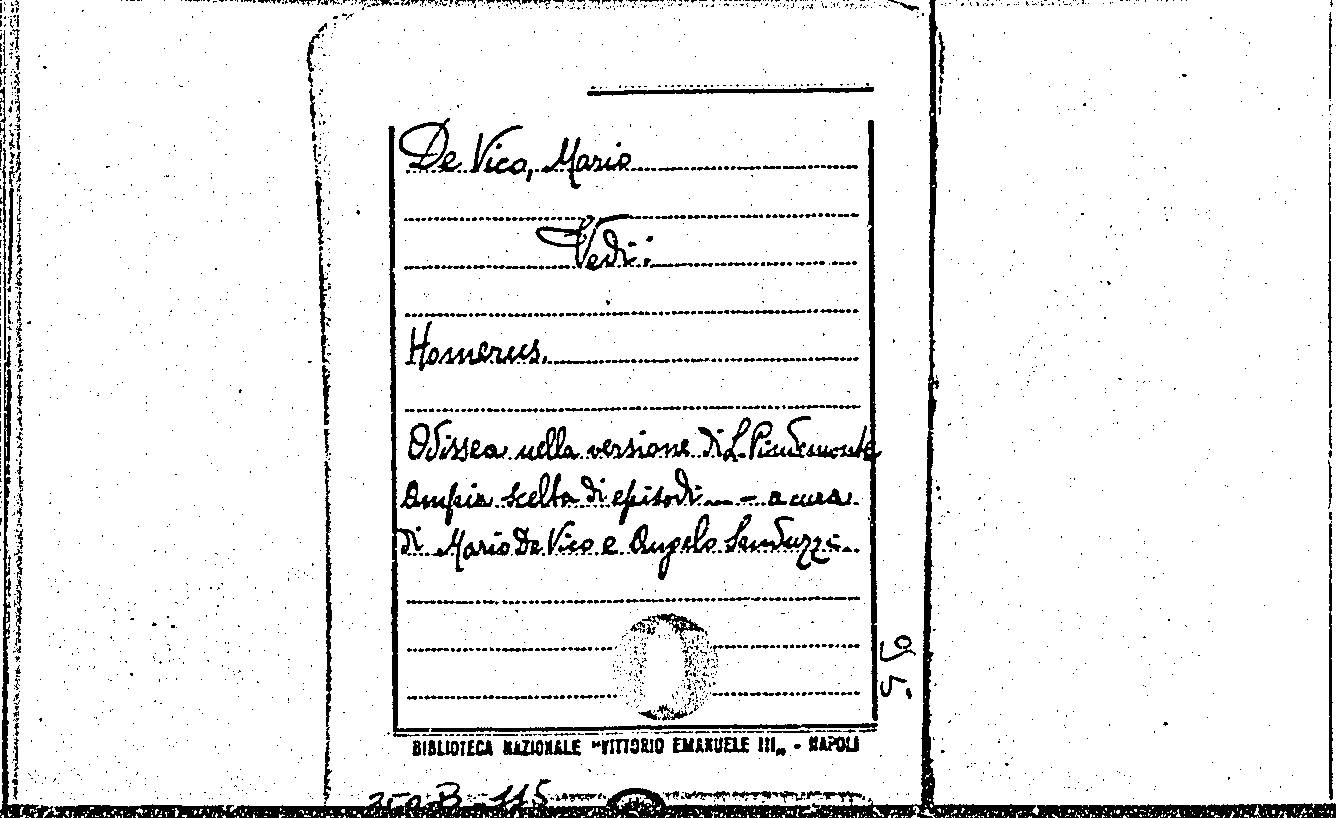 De Vico, Mario
Vedi:
Homerus.
Odissea nella versione di I. Pindemonte
Ampia scelta di episodi... - a cura
di Mario De Vico e Angelo Sanduzzi.
95
BIBLIOTECA NAZIONALE "VITTORIO EMANUELE III„ - NAPOLI